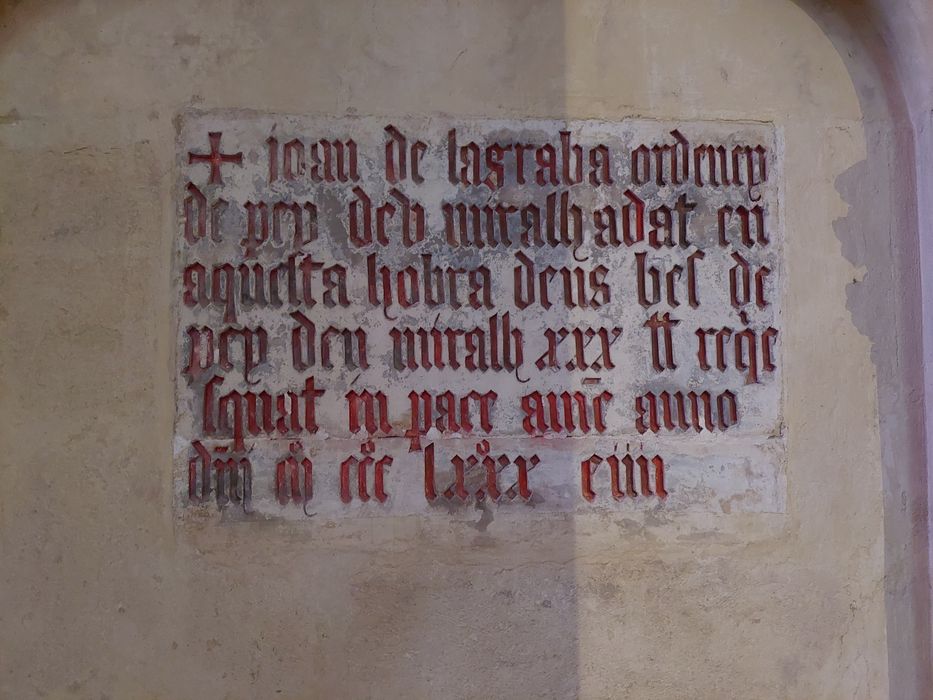 + joan de lagraba ordeney
de pey dedu miralh adat en
aquesta hobra deus bes de
pey deu miralh xxx tt req̄e
squat in pace amē anno
dm̄ mº cccº lxºxx e iiii